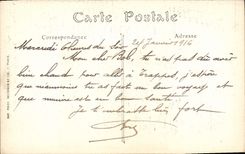 Carte Postale
Correspondance
Adresse
Mercredi 6 heures du soir 24 Janvier 1916
Mon cher Bob, tu n'as pas dû avoir
bien chaud pour aller à Trappes, j'espère
que néanmoins tu as fait un bon voyage et
que mémère est en bonne santé.
Je t'embrasse bien fort